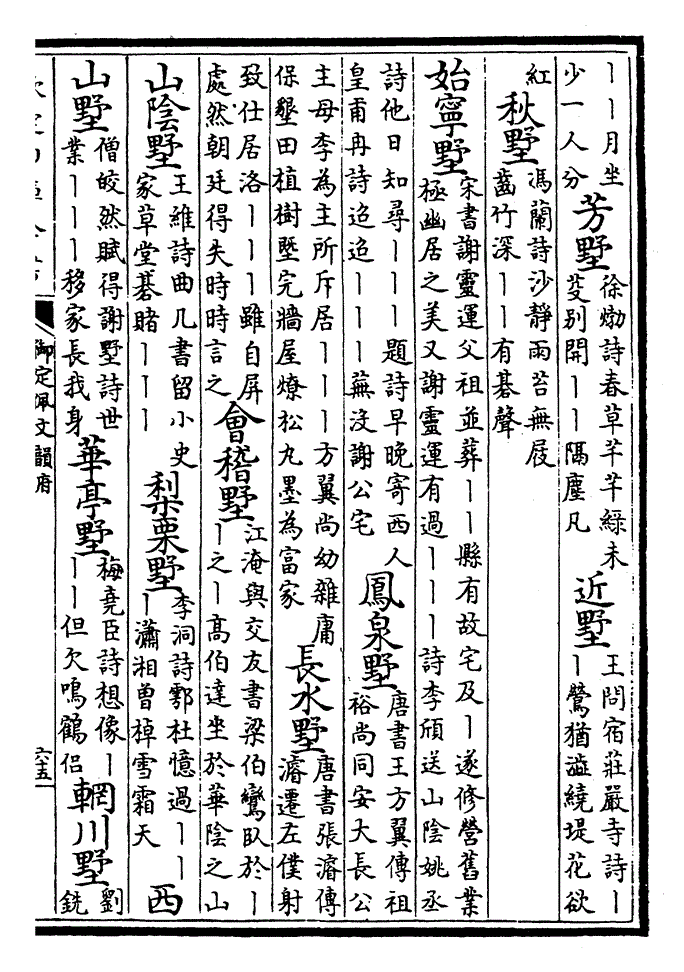 ｜｜月坐
少一人分
芳墅
徐𤊹詩春草芊芊綠未
芟别開｜｜隔塵凡
近墅
王問宿莊嚴寺詩｜
｜鶯猶澁繞堤花欲
紅
秋墅
馮蘭詩沙靜雨苔無屐
齒竹深｜｜有碁聲
始寧墅
宋書謝靈運父祖並葬｜｜縣有故宅及｜遂修營舊業
極幽居之美又謝靈運有過｜｜｜詩李頎送山陰姚丞
詩他日知尋｜｜｜題詩早晚寄西人
皇甫冉詩迢迢｜｜｜蕪没謝公宅
鳳泉墅
唐書王方翼傳祖
裕尚同安大長公
主母李為主所斥居｜｜｜方翼尚幼雜庸
保墾田植樹塈完牆屋燎松丸墨為富家
長水墅
唐書張濬傳
濬遷左僕射
致仕居洛｜｜｜雖自屏
處然朝廷得失時時言之
會稽墅
江淹與交友書梁伯鸞臥於｜
｜之｜高伯達坐於華陰之山
山陰墅
王維詩曲几書留小史
家草堂碁賭｜｜｜
梨栗墅
李洞詩鄠杜憶過｜｜
｜瀟湘曾棹雪霜天
西
山墅
僧皎然賦得謝墅詩世
業｜｜｜移家長我身
華亭墅
梅堯臣詩想像｜
｜｜但欠鳴鶴侶
輞川墅
劉
銑
御定佩文韻府
六五